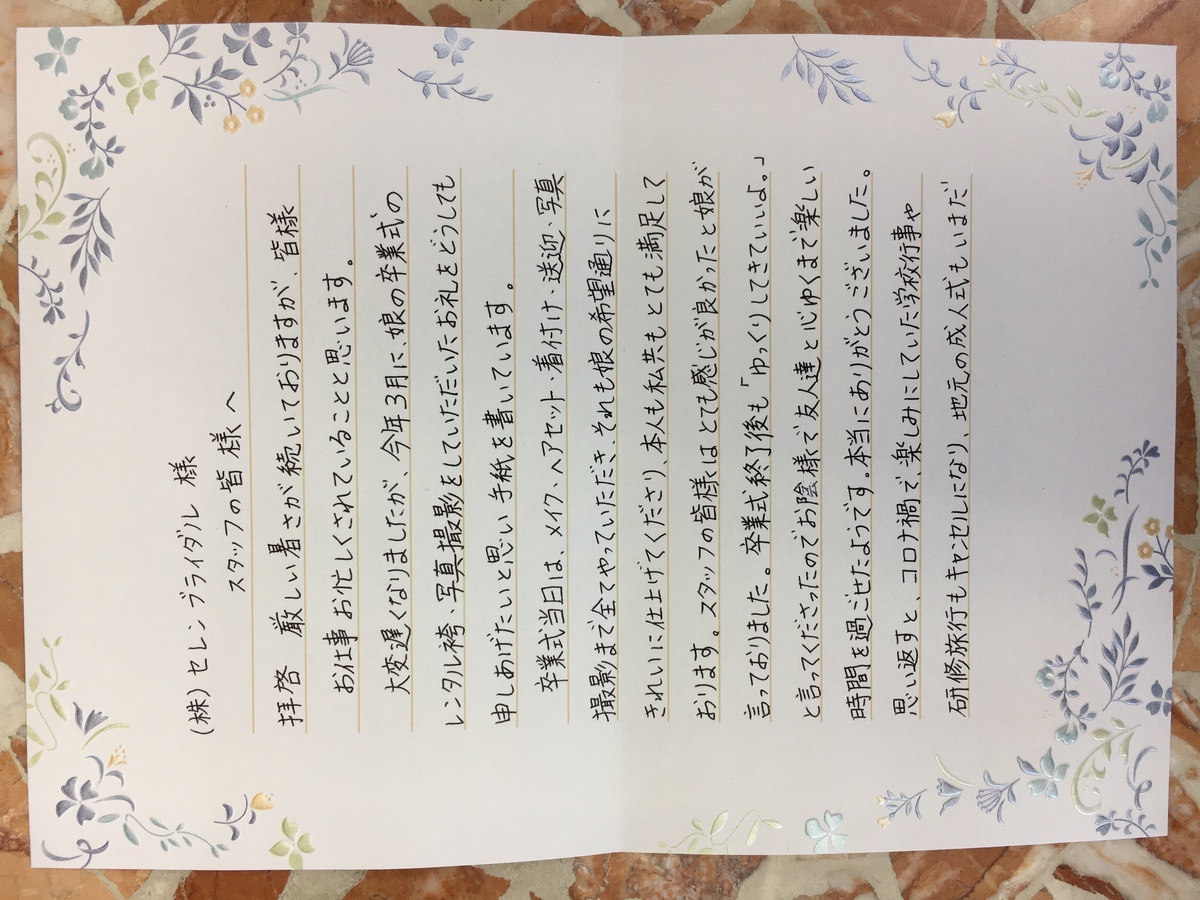 (株)セレンブライダル 様
スタッフの皆様へ
拝啓 厳しい暑さが続いておりますが、皆様
お仕事お忙しくされていることと思います。
大変遅くなりましたが、今年3月に、娘の卒業式の
レンタル袴・写真撮影をしていただいたお礼をどうしても
申しあげたいと思い手紙を書いています。
卒業式当日は、メイク・ヘアセット・着付け・送迎・写真
撮影まで全てやっていただき、それも娘の希望通りに
きれいに仕上げてくださり、本人も私共もとても満足して
おります。スタッフの皆様はとても感じが良かったと娘が
言っておりました。卒業式終了後も「ゆっくりしてきていいよ。」
と言ってくださったのでお陰様で友人達と心ゆくまで楽しい
時間を過ごせたようです。本当にありがとうございました。
思い返すと、コロナ禍で、楽しみにしていた学校行事や
研修旅行もキャンセルになり、地元の成人式もいまだ